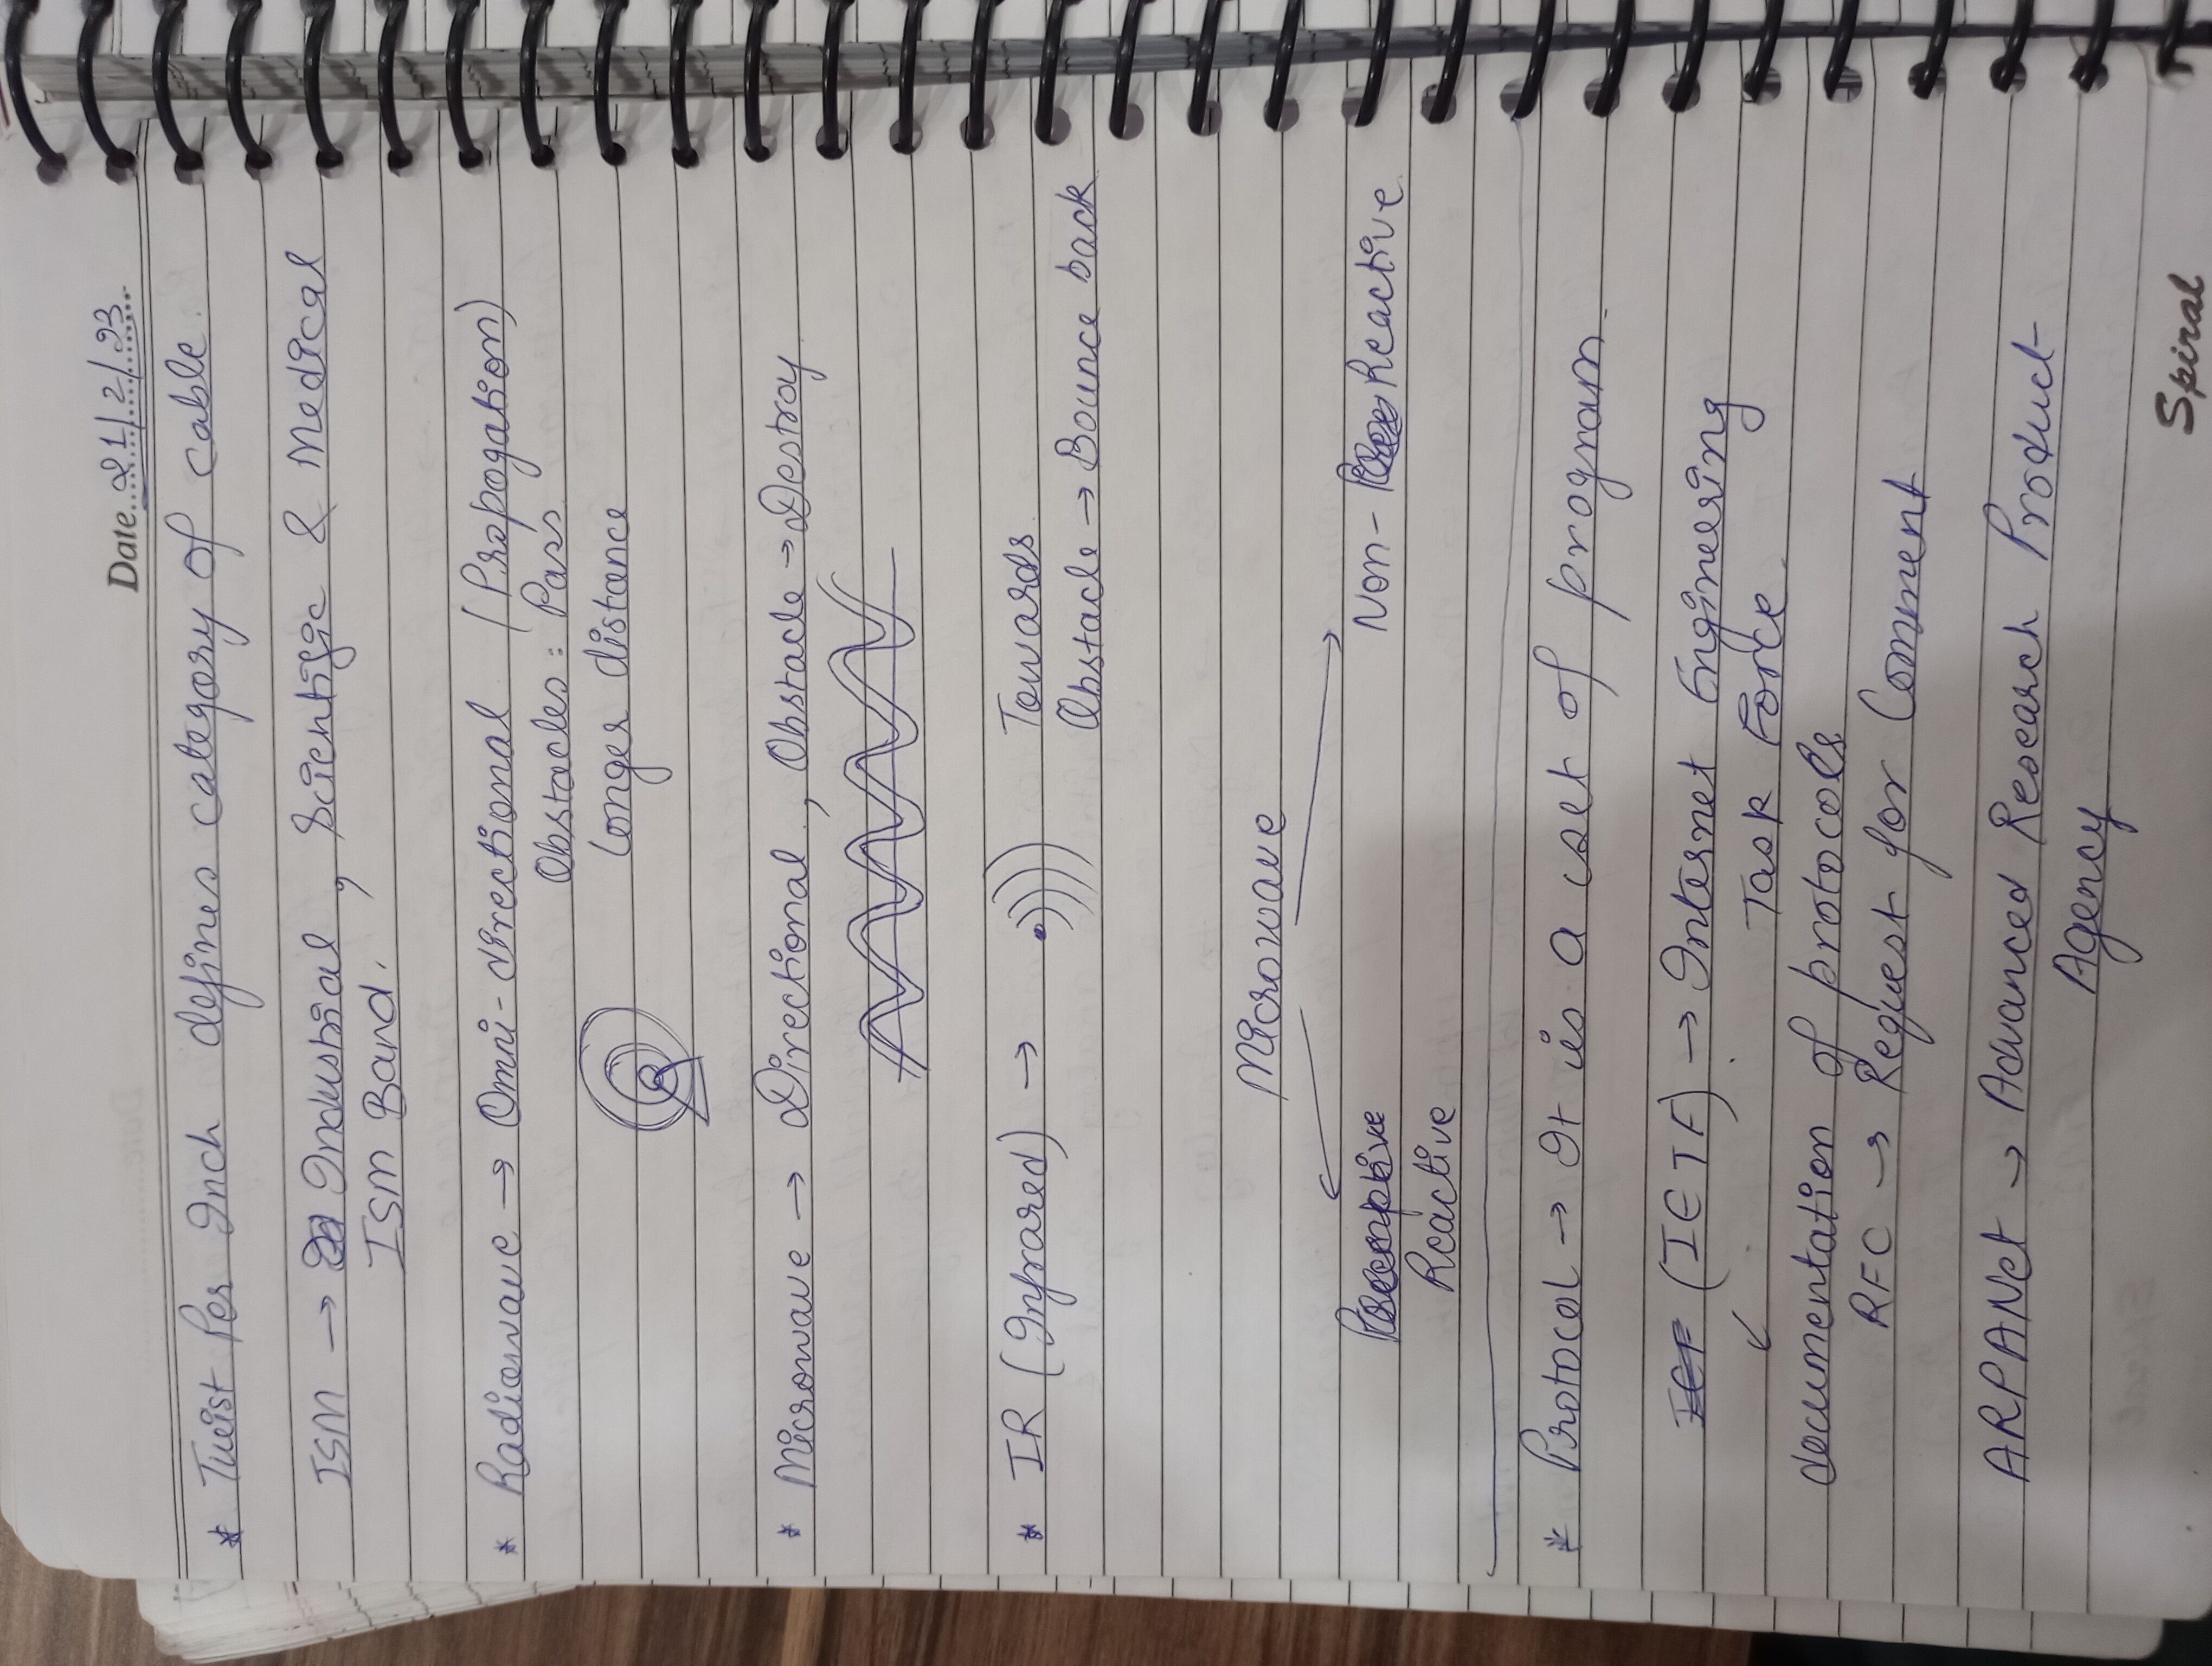 Date 21/2/23
* Twist Per Inch defines category of cable.
ISM → Industrial, Scientific & Medical
ISM Band.
* Radiowave → Omni-directional (Propogation)
Obstacles: Pass
Longer distance
* Microwave → Directional, Obstacle → Destroy
* IR (Infrared) → Towards
Obstacle → Bounce back
Microwave
Preemptive Non-Reactive
Reactive
* Protocol → It is a set of program.
(IETF) → Internet Engineering
Task Force.
documentation of protocols
RFC → Request for Comment
ARPANet → Advanced Research Product
Agency
Spiral